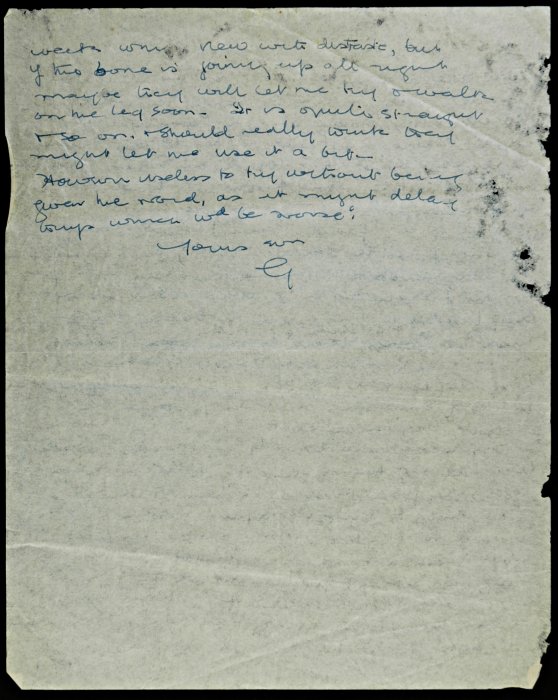 weeks when new with distaste, but
if the bone is joining up all right
maybe they will let me try & walk
on the leg soon. It is quite straight
& so on. I should really think they
might let me use it a bit.
However useless to try without being
given the word, as it might delay
things which wd be worse.
Yours ever
G